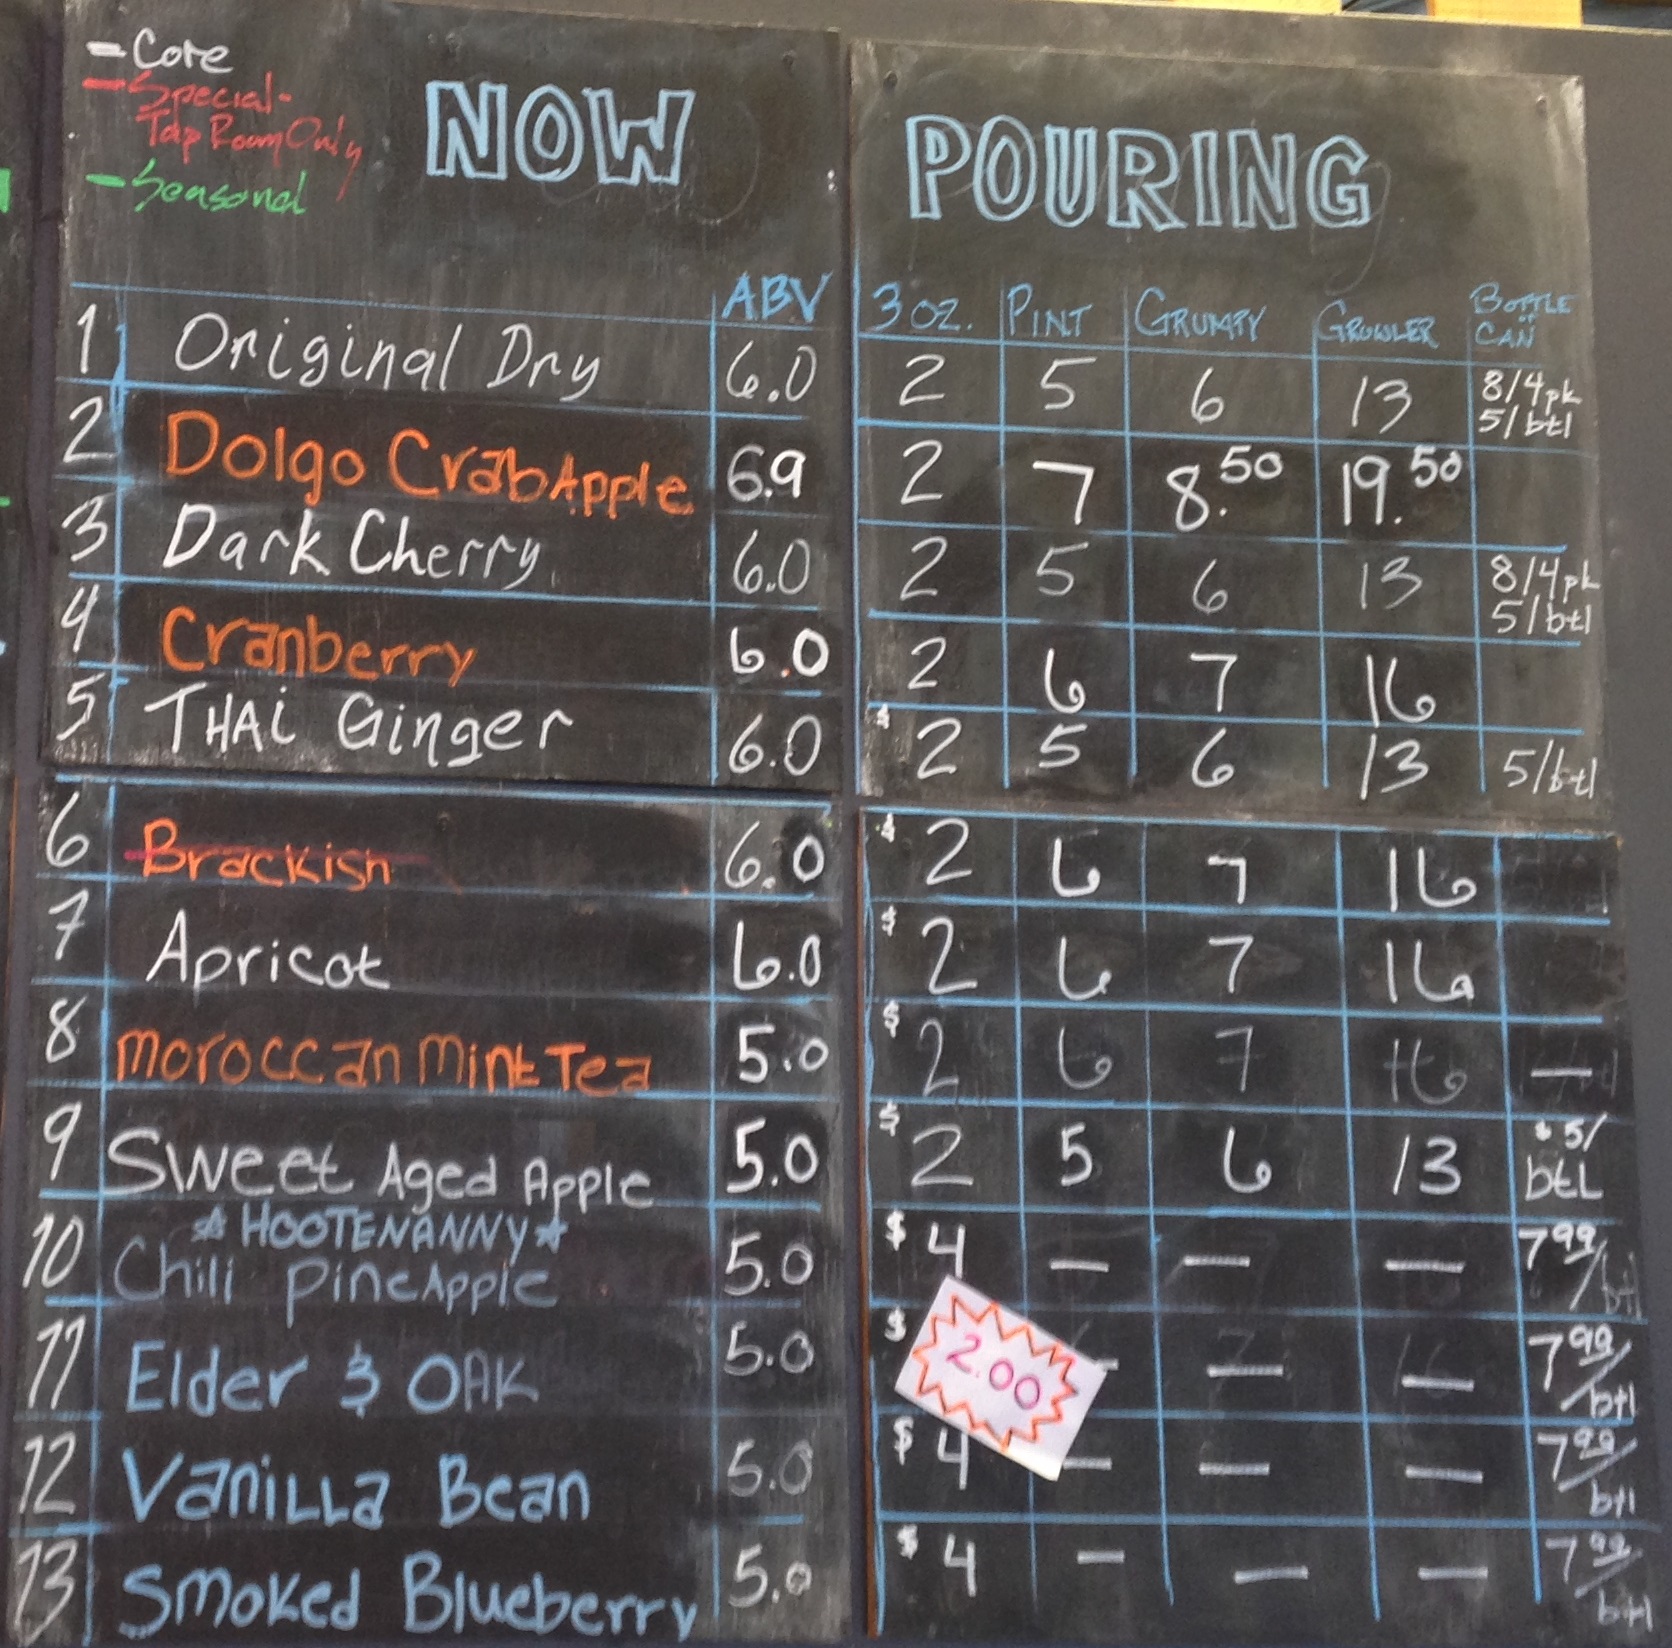 - Core
- Special-
Tap Room Only
- Seasonal
NOW POURING
ABV 3 OZ. PINT GRUMPY GROWLER BOTTLE or CAN
1 Original Dry 6.0 2 5 6 13 8/4pk 5/btl
2 Dolgo CrabApple 6.9 2 7 8.50 19.50
3 Dark Cherry 6.0 2 5 6 13 8/4pk 5/btl
4 Cranberry 6.0 2 6 7 16
5 THAi Ginger 6.0 $2 5 6 13 5/btl
6 Brackish 6.0 $2 6 7 16
7 Apricot 6.0 $2 6 7 16
8 Moroccan Mint Tea 5.0 $2 6 7 16 —
9 Sweet Aged Apple 5.0 $2 5 6 13 $5/btL
☆ HOOTENANNY ☆
10 Chili PineApple 5.0 $4 — — — 7.99/btl
11 Elder & OAK 5.0 $ 2.00 — — — 7.99/btl
12 VaniLLa Bean 5.0 $4 — — — 7.99/btl
13 Smoked Blueberry 5.0 $4 — — — 7.99/btl